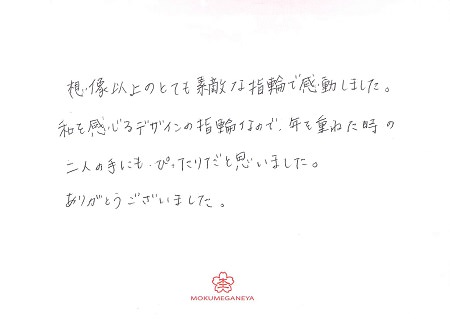 想像以上のとても素敵な指輪で感動しました。
和を感じるデザインの指輪なので、年を重ねた時の
二人の手にも、ぴったりだと思いました。
ありがとうございました。
MOKUMEGANEYA